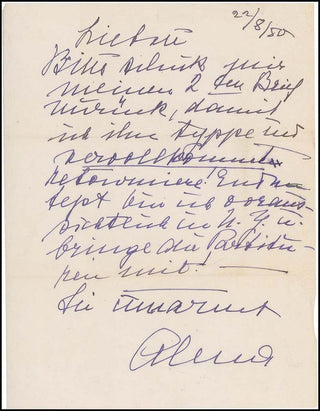 22/8/50
Liebste
Bitte schick mir
meinen 2 ten Brief
zurück, damit
ich ihn typpe und
vervollkommnet
retourniere! Ende
Sept bin ich voraus-
sichtlich in N.Y. u.
bringe die Partitu-
ren mit!
umarmt
Alma